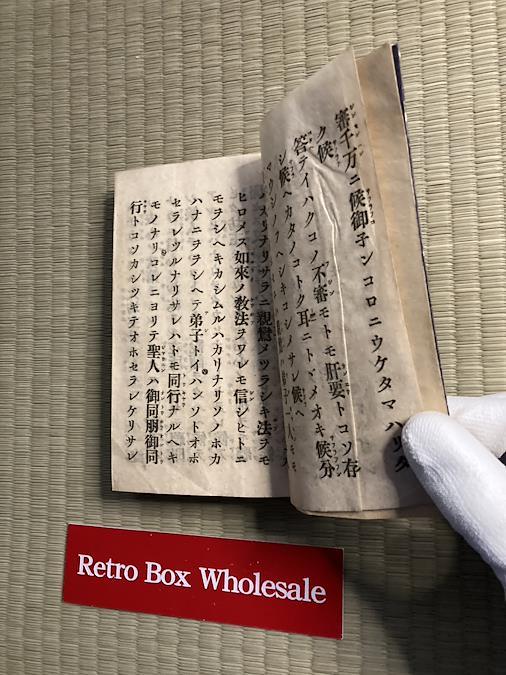 審千万ニ候御子ンコロニウケタマハリタ
ク候
答テイハクコノ不審モトモ肝要トコソ存
シ候ヘカタノコトク耳ニトヽメオキ候分
マウシノフヘシキコシメサレ候ヘ
リナリサラニ親鸞メツラシキ法ヲモ
ヒロメス如來ノ教法ヲワレモ信シヒトニ
モヲシヘキカシムルハカリナリソノホカ
ハナニヲヲシヘテ弟子トイハンソトオホ
セラレツルナリサレハトモ同行ナルヘキ
モノナリコレニヨリテ聖人ハ御同朋御同
行トコソカシツキテオホセラレケリサレ
Retro Box Wholesale